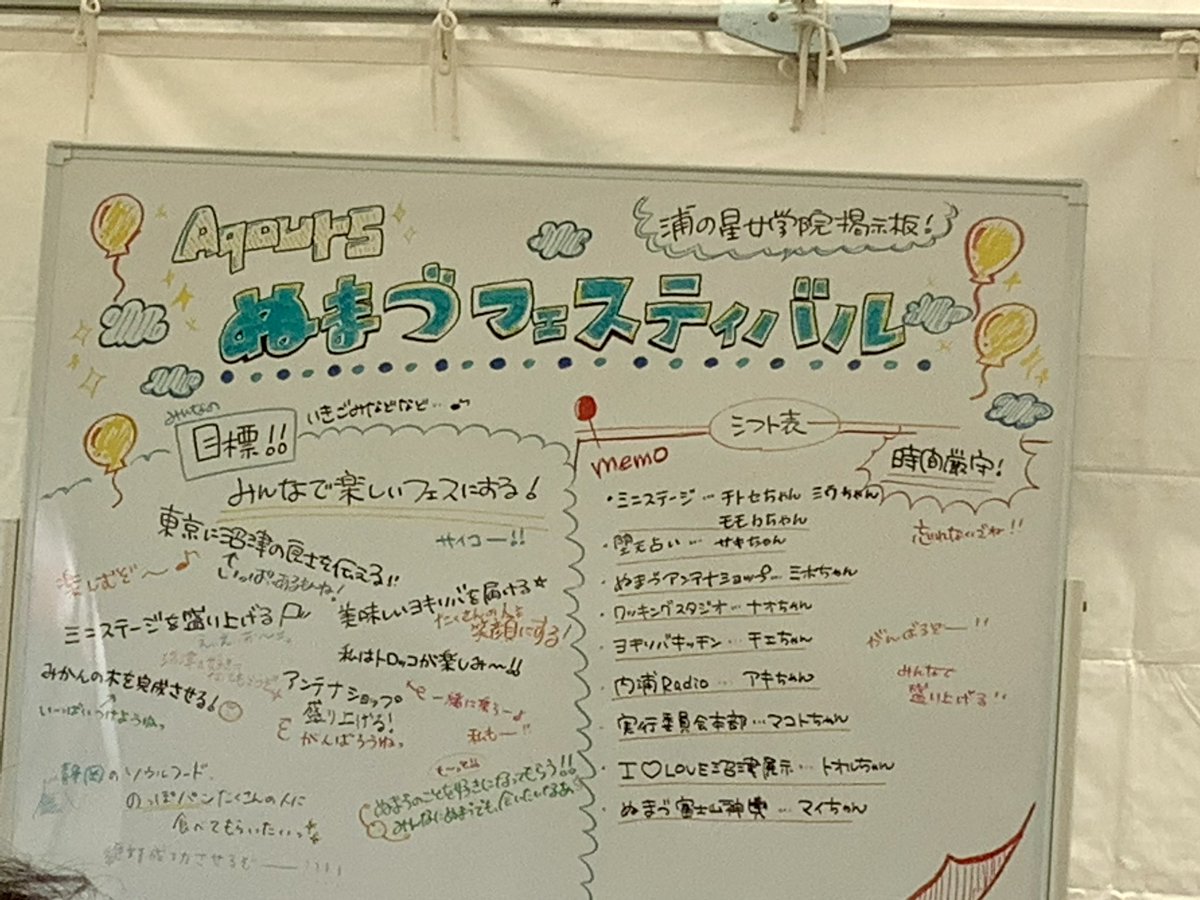 Aqours
浦の星女学院掲示板!
ぬまづフェスティバル
みんなの
目標!!
いきごみなどなど…♪
みんなで楽しいフェスにする!
東京に沼津の良さを伝える!!
いっぱいあるもんね!
サイコー!!
楽しむぞ〜♪
美味しいヨキソバを届ける☆
たくさんの人を
笑顔にする!
ミニステージを盛り上げる
私はトロッコが楽しみ〜!!
みかんの木を完成させる!
いーっぱいつけようね。
アンテナショップ。
盛り上げる!
がんばろうね。
一緒に乗ろー♪
私もー!!
静岡のソウルフード
のっぽパンたくさんの人に
食べてもらいたいっ☆
絶対成功させるぞー!!!!
も〜っと
ぬまづのことを好きになってもらう!!
みんなにぬまづでも会いたいなあ
シフト表
memo
時間厳守!
・ミニステージ…チトセちゃん ミウちゃん
モモカちゃん
忘れないでね!!
・堕天占い…サキちゃん
・ぬまづアンテナショップ…ミホちゃん
・ワッキングスタジオ…ナオちゃん
・ヨキソバキッチン…チエちゃん
がんばるぞー!!
・内浦Radio…アキちゃん
みんなで
盛り上げる!!
・実行委員会本部…マコトちゃん
・I♡LOVE沼津展示…トオルちゃん
・ぬまづ富士山神社…マイちゃん